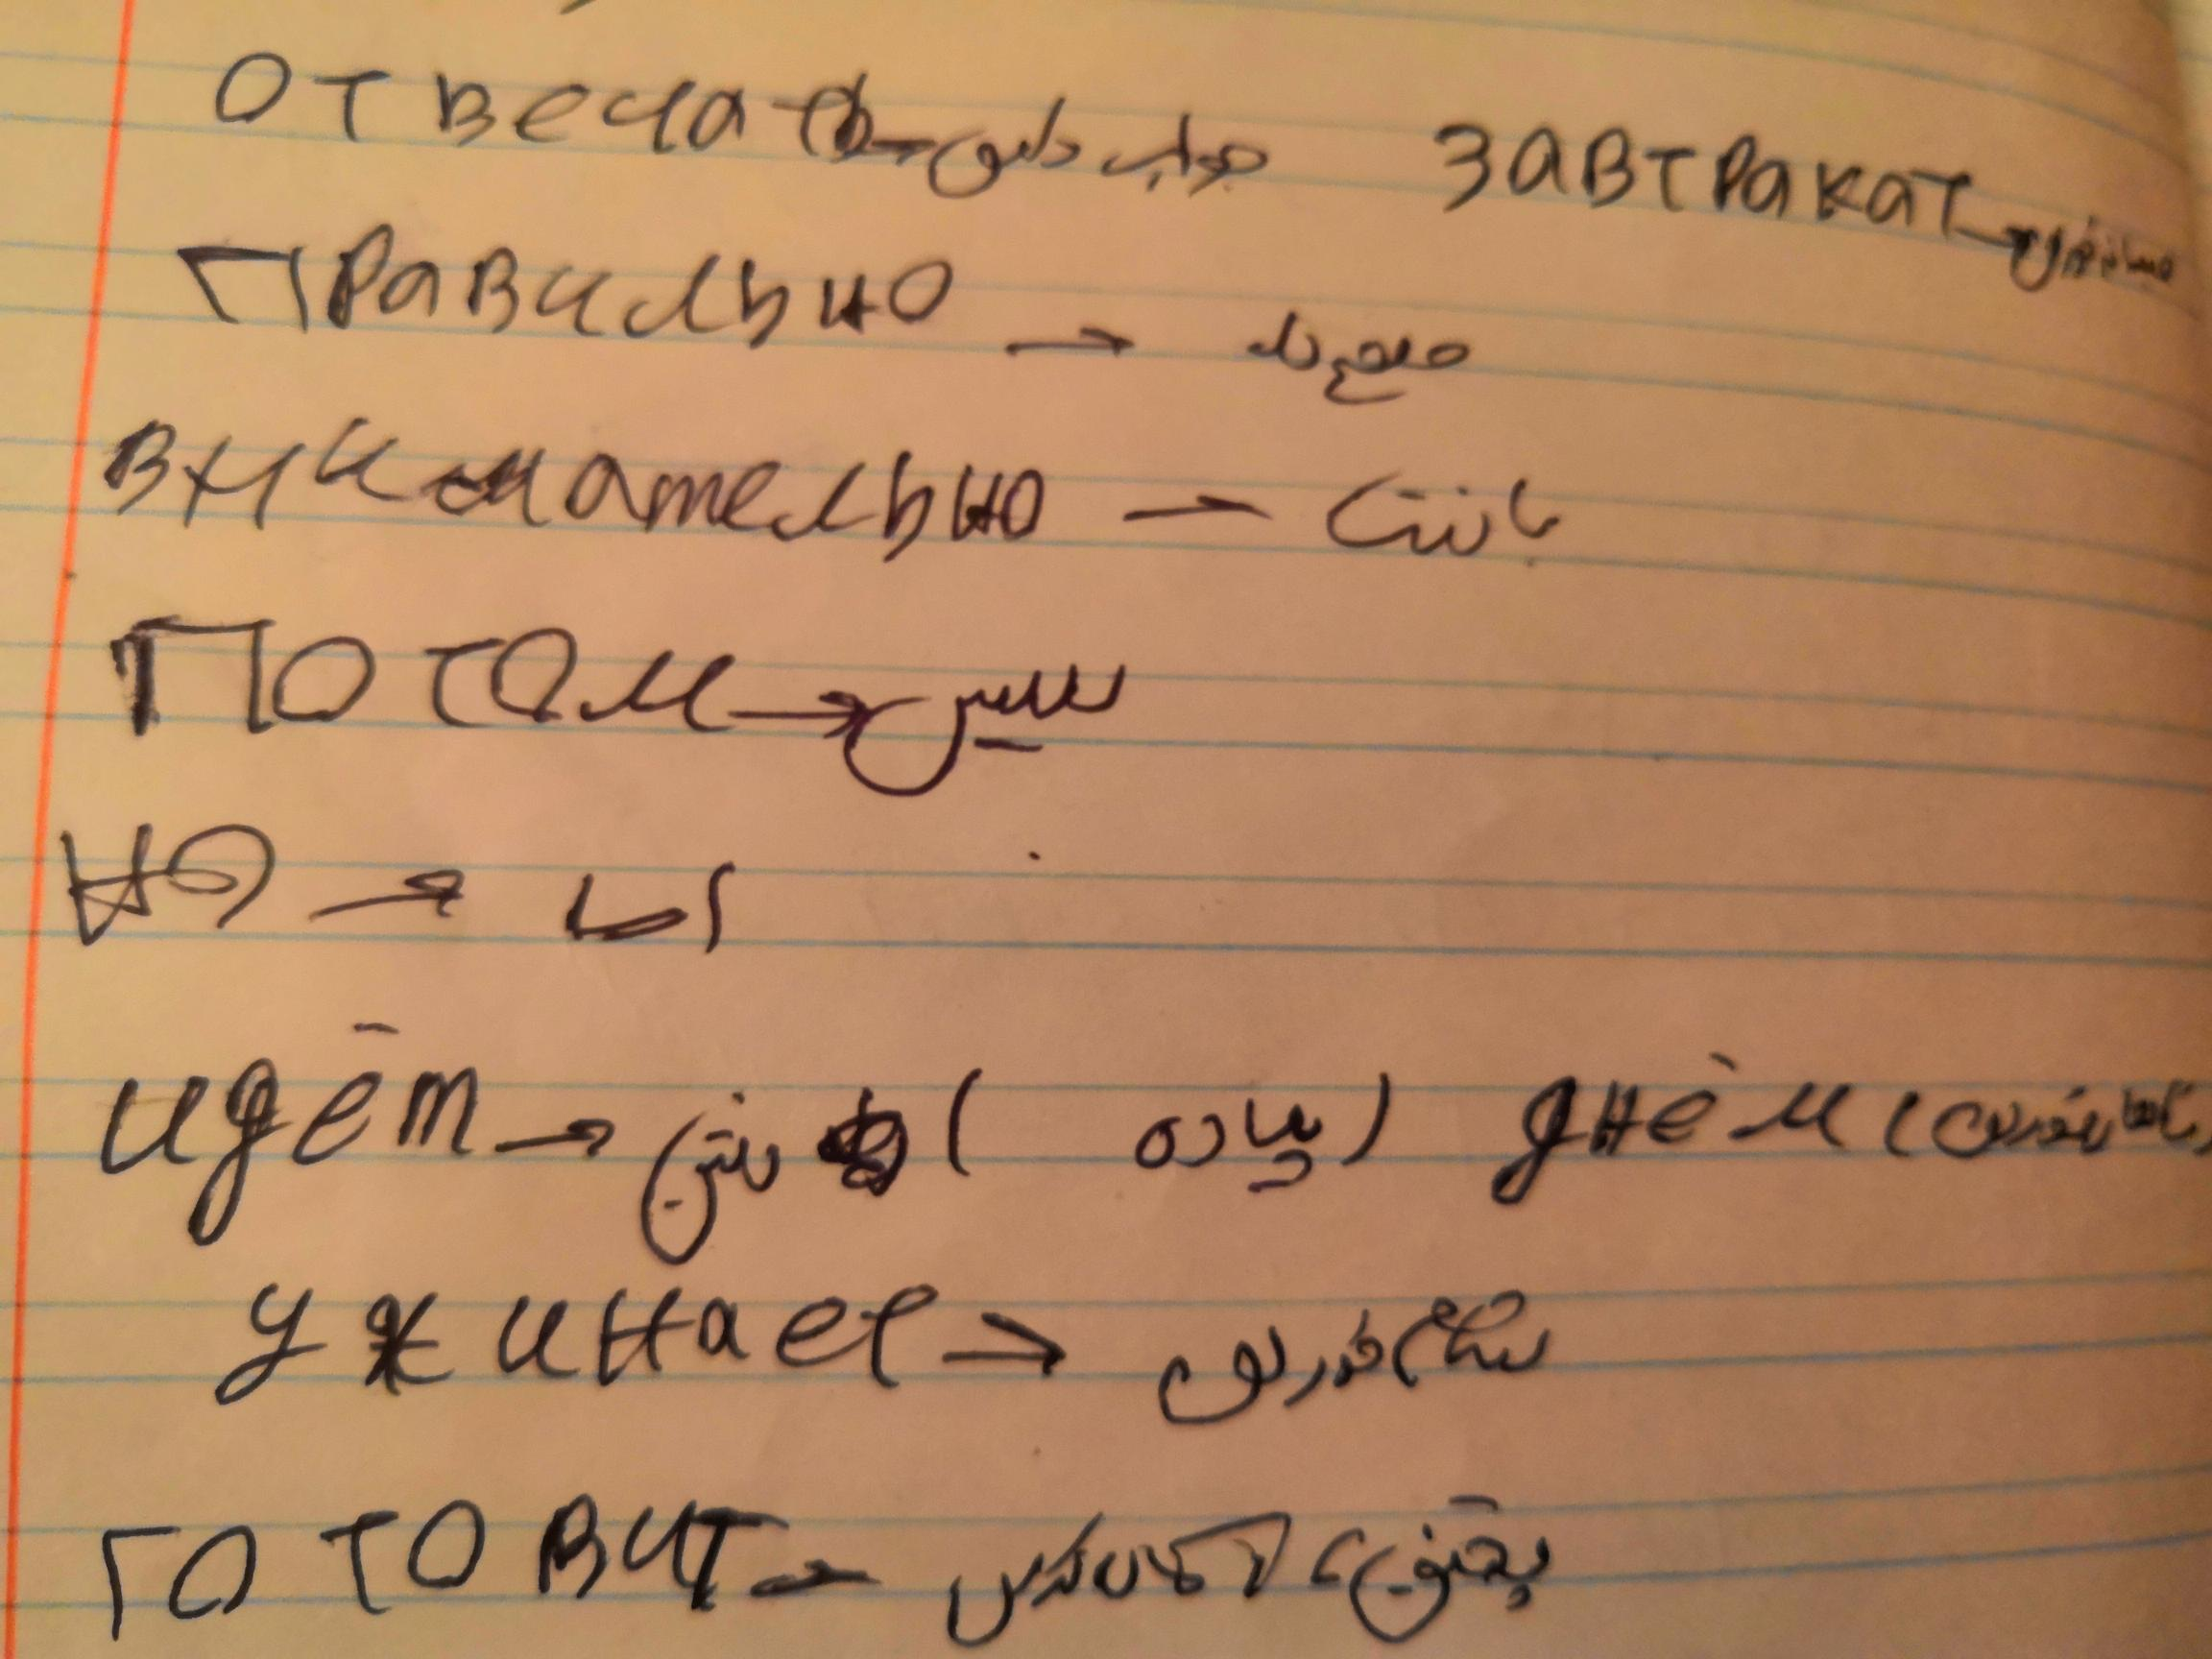 отвечать → جواب دادن завтракат → صبحانه خوردن
правильно → صحیح
внимательно → با دقت
потом → سپس
но → اما
идём → رفتن ( پیاده ) днём (
ужинает → شام خوردن
готовит → پختن ، آماده کردن